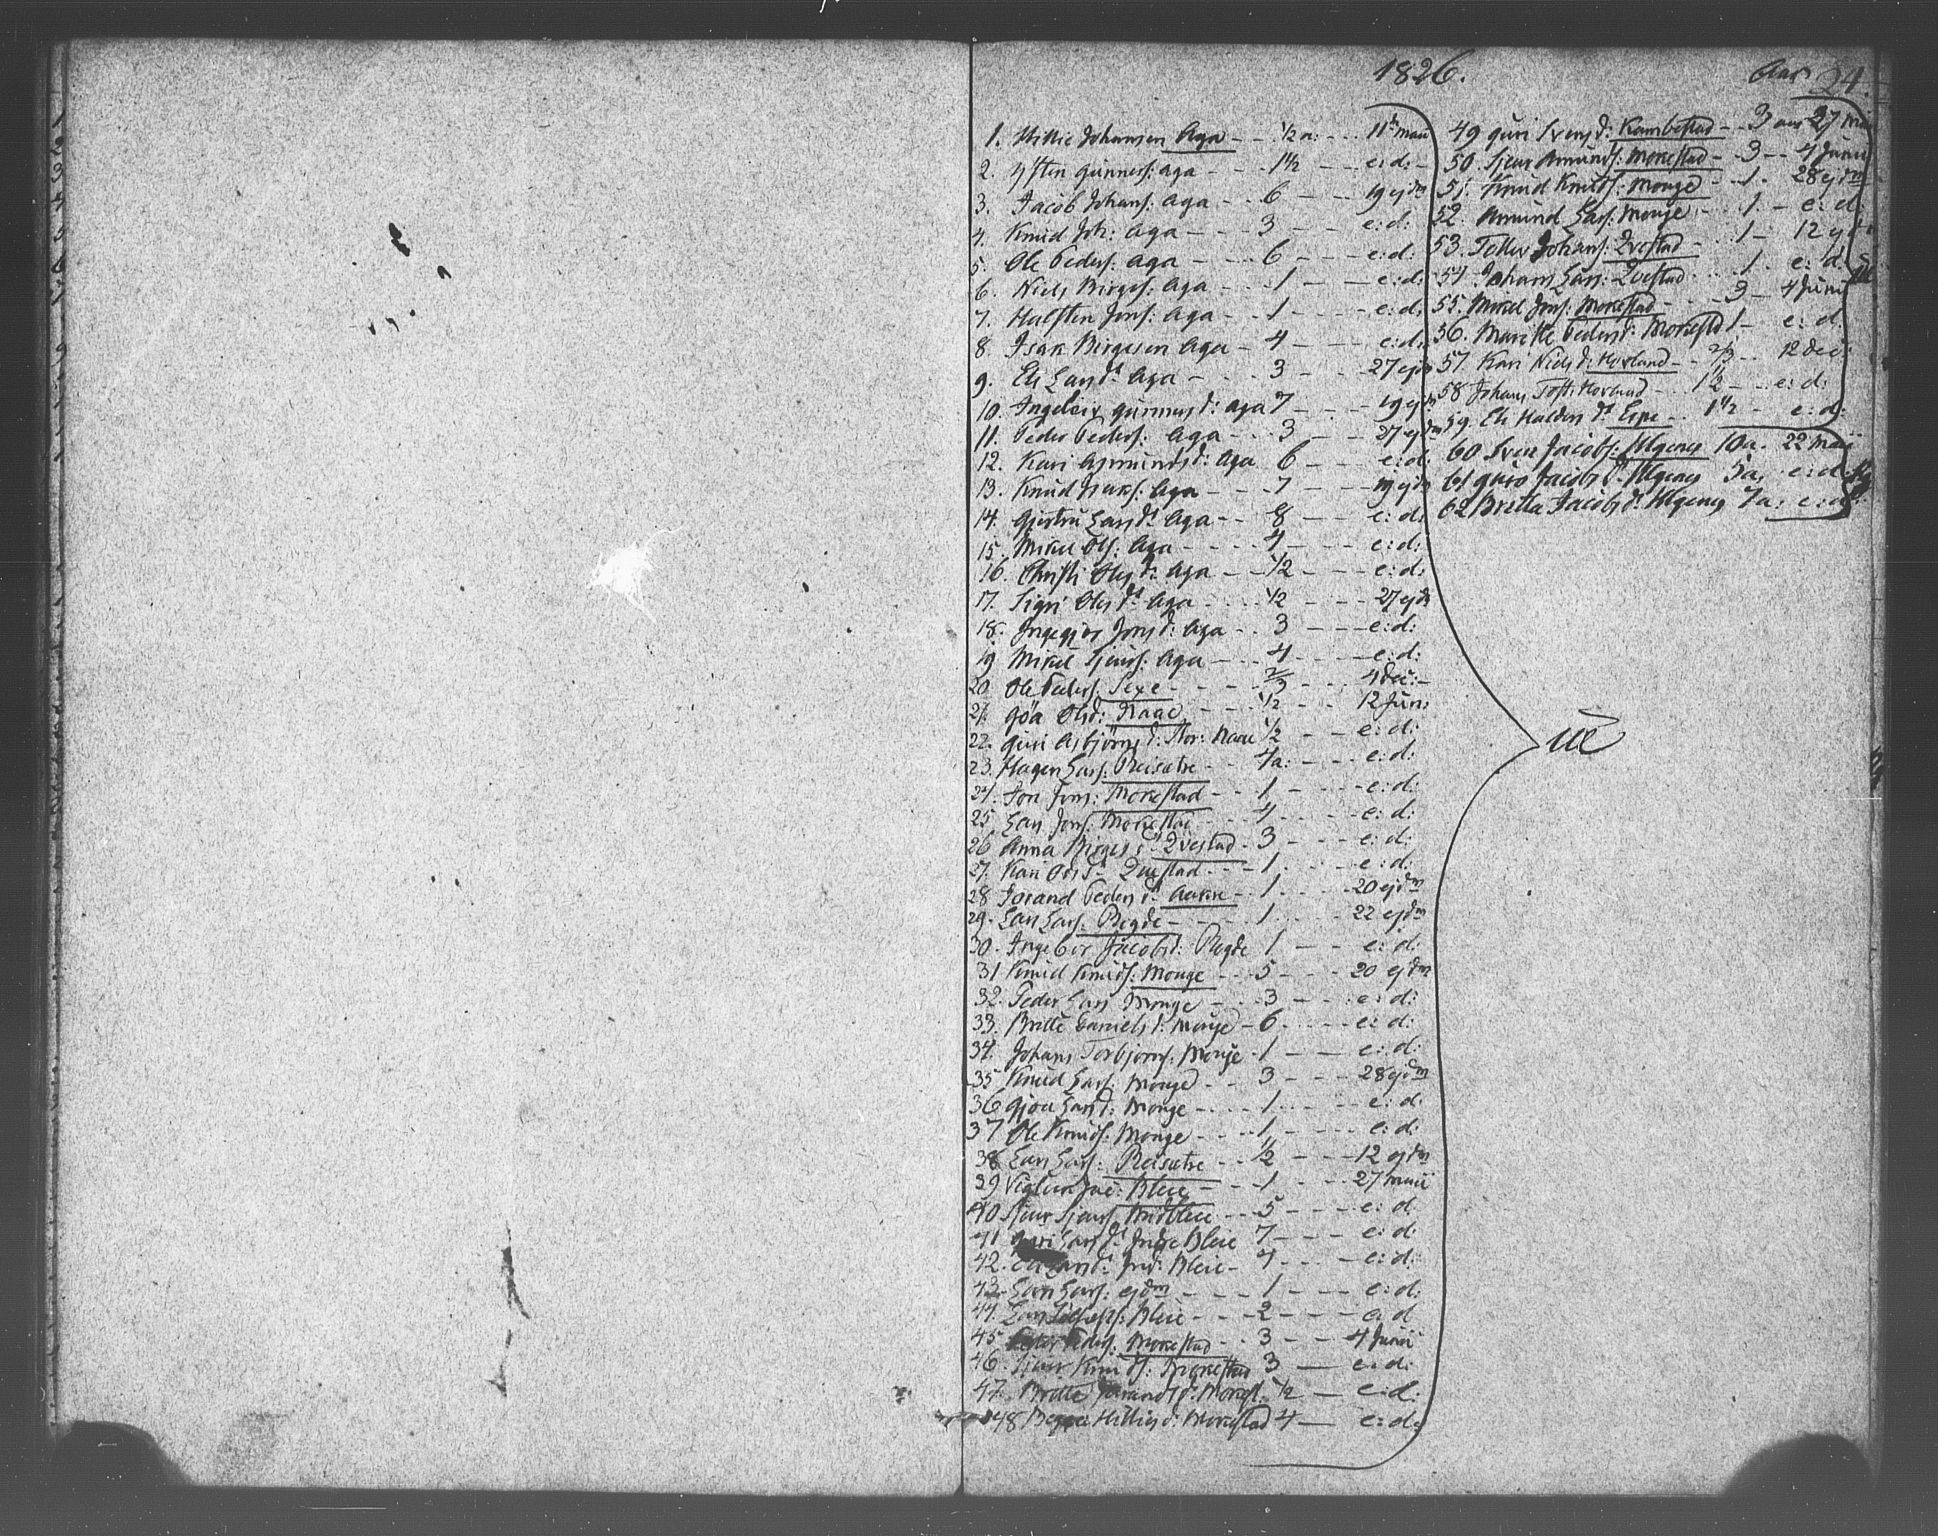 1826.
Aar 24.
1. Hillie Johansen Aga - - ½ a: - - - 11th Maii
2. Østen Gunners: Aga - - - 1½ - - - e: d:
3. Jacob Johans: Aga - - 6 - - - 19 ejdm
4. Knud Joh: Aga - - - 3 - - - e: d:
5. Ole Peders: Aga - - - 6 - - - e: d:
6. Niels Birges: Aga - - - 1 - - - e: d:
7. Halsten Jons: Aga - - - 1 - - - e: d:
8. Isak Birgesen Aga - 4 - - - e: d:
9. Eli Larsdr Aga - - - 3 - - - 27 ejdm
10. Ingeleiv Gunnersd: Aga 7 - - - 19 ejdm
11. Peder Peders: Aga - - 3 - - 27 ejdm
12. Kari Asmundsd: Aga 6 - - - e: d:
13. Knud Isaks: Aga - - - 7 - - - 19 ejdm
14. Gjertru Larsdr Aga - - 8 - - - e: d:
15. Mikel Ols: Aga - - - 4 - - - e: d:
16. Christi Olsd: Aga - - ½ - - - e: d:
17. Sigri Olsdr Aga - - - ½ - - - 27 ejdm
18. Ingegjer Jonsd: Aga - - 3 - - - e: d:
19 Mikel Sjurs: Aga - - 4 - - - e: d:
20 Ole Peders: Sexe - - - - 2/3 - - - 4 Dec: -
21. Göa Olsd: Naae - - - ½ - - - 12 Jun:
22. Guri Asbjörnsd: Naae ½ - - e: d:
23. Hagen Lars: Reisætre - - 4 a: - - - e: d:
24. Jon Jons: Morkestad - - 1 - - - e: d:
25 Lars Jons: Morkestad - - 4 - - - e: d:
26 Anna Birges Qvestad - 3 - - - e: d:
27. Kari Olsdr Qvestad - - - 1 - - - e: d:
28 Jorand Pedersdr - - 1 - - - 20 ejdm
29. Lars Lars: Regde - - - - 1 - - - 22 ejdm
30. Ingebor Jacobsd: Regde 1 - - - e: d:
31 Knud Knuds: Mouge - - 5 - - - 20 ejdm
32. Peder Lars Mouge - - 3 - - - e: d:
33. Britte Danielsd: Mouge - 6 - - - e: d:
34. Johans Torbjorns: Mouge - 1 - - - e: d:
35 Knud Lars: Mouge - - 3 - - - 28 ejdm
36 Gjoa Larsd: Mouge - - - 1 - - - e: d:
37 Ole Knuds: Mouge - - - 1 - - - e: d:
38 Lars Lars: Reisætre - - ½ - - - 12 ejdm
39 Jac: Bleie - - - 1 - - - 27 Maii
40 Sjur Sjurs: Midbleie - - 5 - - - e: d:
41 Guri Larsdr Indre Bleie 7 - - - e: d:
42. Larsdr Ind: Bleie - 4 - - - e: d:
43. Lars Lars: ejdm - - - 1 - - - e: d:
44. Lars Bleie - - - 2 - - - e: d
45 Peders: Morkestad - - 3 - - - 4 Junii
46. Sjur Knuds: Morkestad 3 - - e: d:
47. Britte Morkest. ½ - - e: d:
48 Hilliesd: Morkestad 4 - - e: d:
49 Guri Svensd: Kambestad - - 3 aar 27 Maii
50. Sjur Amunds: Morkestad - 3 - - 4 Junii
51. Knud Knuds: Mouge - - 1 - 28 ejdm
52. Amund Lars: Mouge - - - 1 - e: d:
53. Tollev Johans: Qvestad - - - 1 - 12 ejdm
54 Johans Lars: Qvestad - - - 1 - e: d:
55. Mikel Jons: Morkestad - - - 3 - 4 Junii
56. Pedersd: Morkestad 1 - e: d:
57 Kari Nielsd: Hovland - - 2/3 - - 12 Dec:
58 Johans Tosts: Hovland - - ½ - - e: d:
59. Eli Haldorsdr Espe - - 1½ - e: d:
60 Sven Jacobs: Algenes 10 a. 22 Maii
61 Guro Jacobsdr Algenes 5 a. e: d:
62 Britta Jacobsdr Algenes 7 a. e: d: